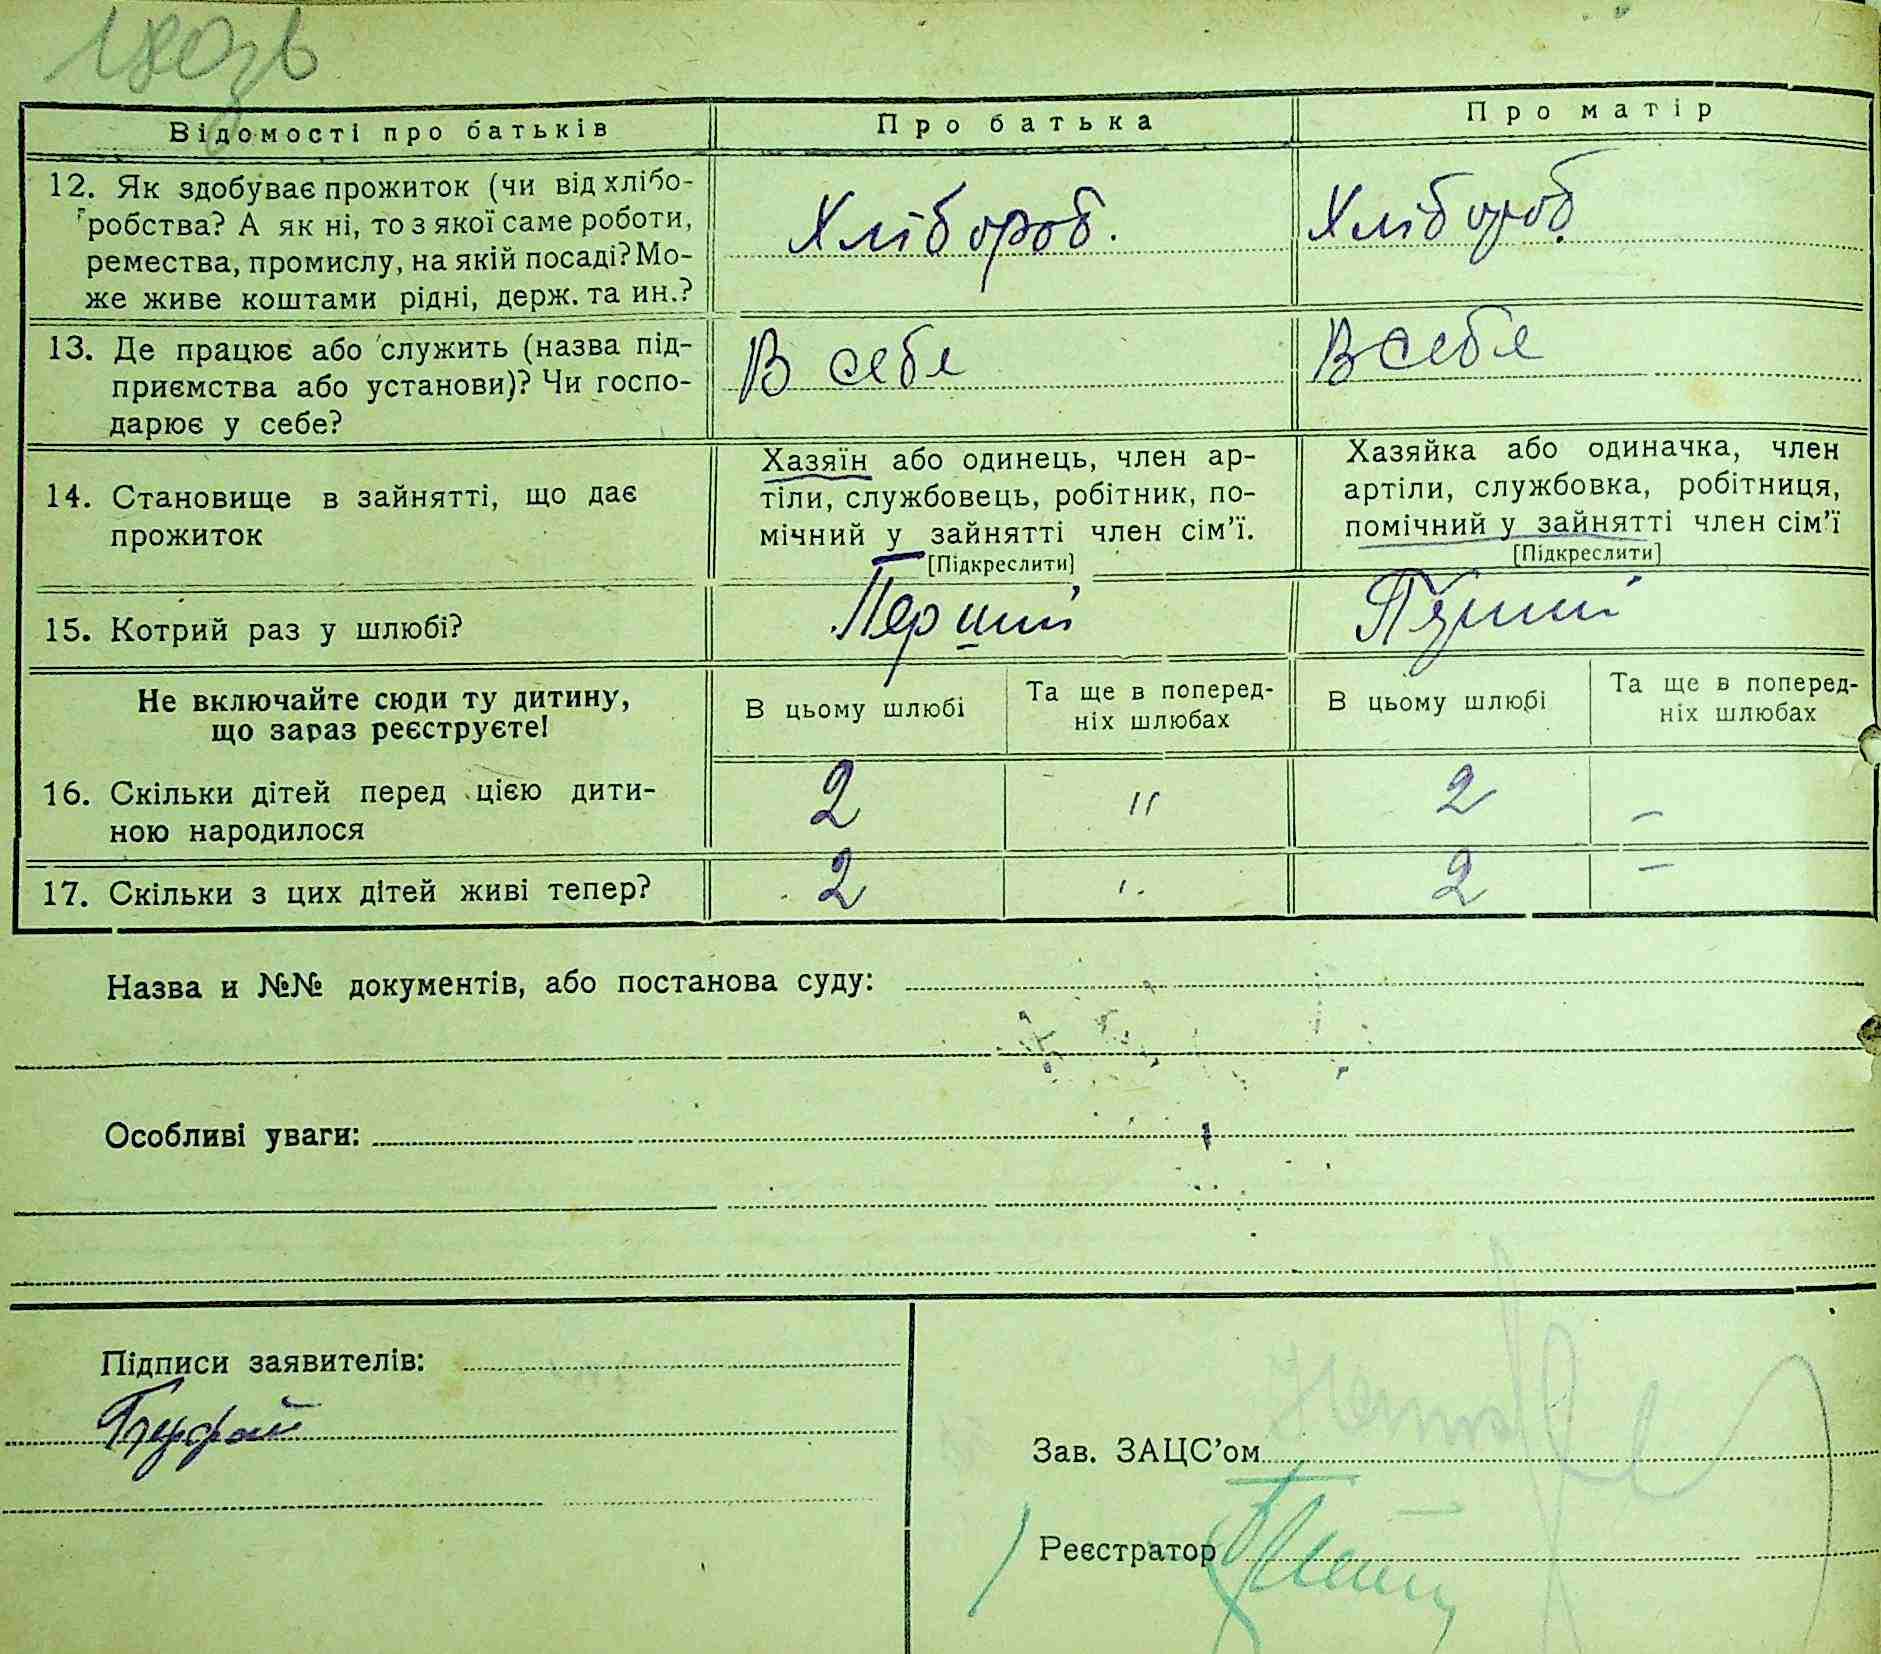 Відомості про батьків
Про батька
Про матір
12. Як здобуває прожиток (чи від хлібо-
робства? А як ні, то з якої саме роботи,
ремества, промислу, на якій посаді? Мо-
же живе коштами рідні, держ. та ин.?
Хлібороб.
Хлібороб.
13. Де працює або служить (назва під-
приємства або установи)? Чи госпо-
дарює у себе?
В себе
В себе
14. Становище в зайнятті, що дає
прожиток
Хазяїн або одинець, член ар-
тіли, службовець, робітник, по-
мічний у зайнятті член сім'ї.
[Підкреслити]
Хазяйка або одиначка, член
артіли, службовка, робітниця,
помічний у зайнятті член сім'ї
[Підкреслити]
15. Котрий раз у шлюбі?
Перший
Перший
Не включайте сюди ту дитину,
що зараз реєструєте!
В цьому шлюбі
Та ще в поперед-
ніх шлюбах
В цьому шлюбі
Та ще в поперед-
ніх шлюбах
16. Скільки дітей перед цією дити-
ною народилося
2
"
2
–
17. Скільки з цих дітей живі тепер?
2
"
2
–
Назва и №№ документів, або постанова суду:
Особливі уваги:
Підписи заявителів:
Зав. ЗАЦС'ом
Реєстратор